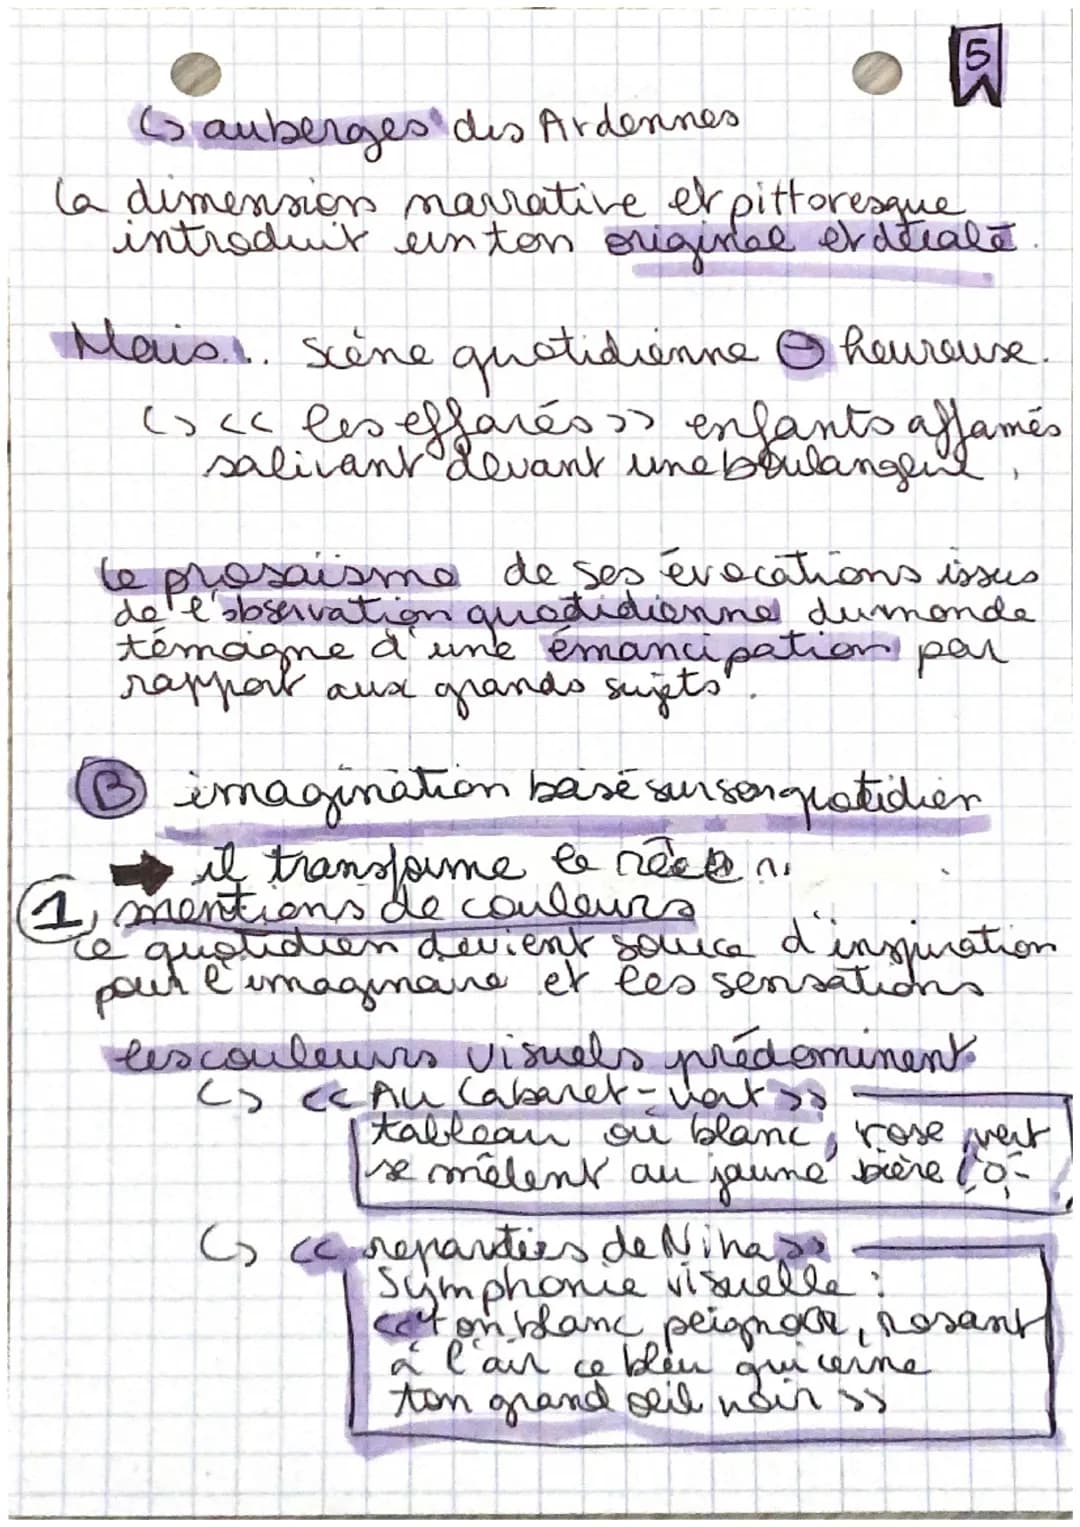 5
↳ auberges des Ardennes
la dimension narrative et pittoresque
introduit un ton original et décalé.
Mais... scène quotidienne ⊖ heureuse.
↳ << les effarés >> enfants affamés
salivant devant une boulangerie,
le prosaïsme de ses évocations issus
de l'observation quotidienne du monde
témoigne d'une émancipation par
rapport aux grands sujets.
B imagination basé sur son quotidien
➡ il transforme le réel
1, mentions de couleurs
le quotidien devient source d'inspiration
pour l'imaginaire et les sensations
les couleurs visuels prédominent
↳ << Au Cabaret-vert >>
tableau où blanc, rose, vert
se mêlent au jaune bière
↳ << reparties de Nina >>
Symphonie visuelle :
<< ton blanc peignoir, rosant
à l'air ce bleu qui cerne
ton grand œil noir >>